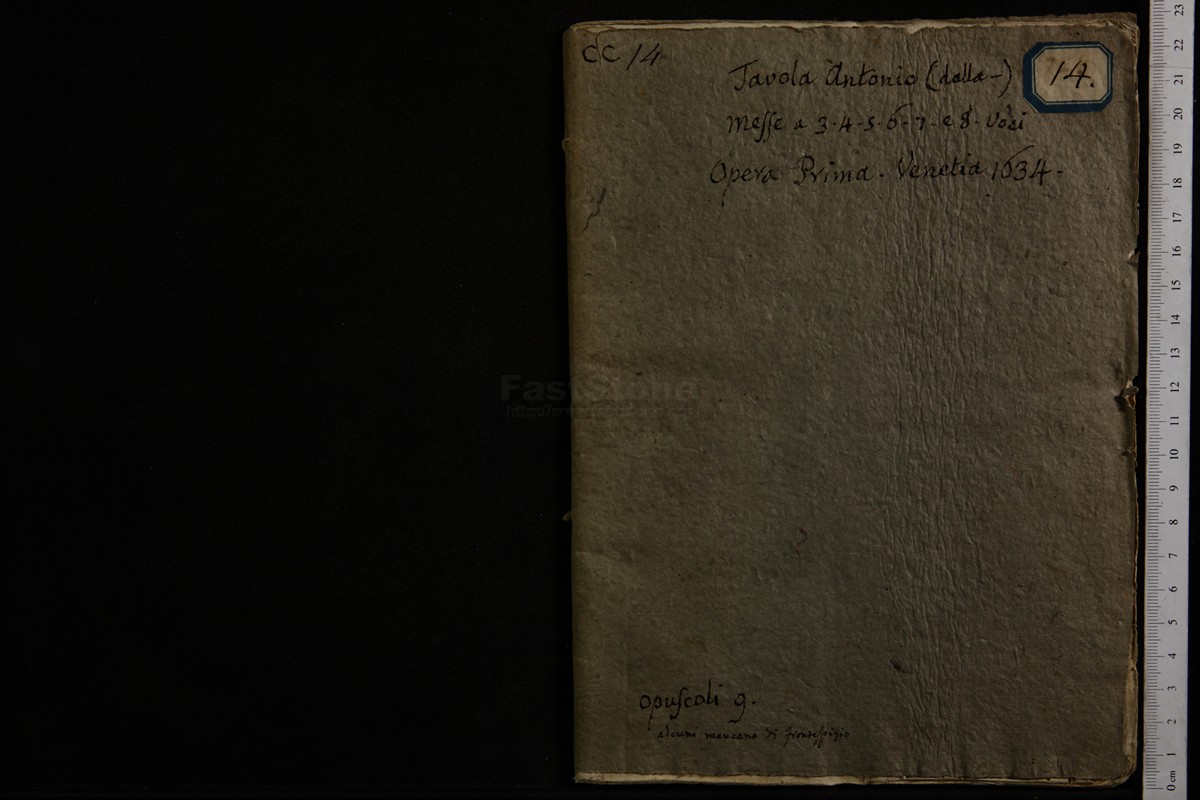 CC 14
14.
Tavola Antonio (dalla-)
Messe a 3-4-5-6-7-e 8. Voci
Opera Prima. Venetia 1634-
opuscoli 9.
alcuni mancano di frontespizio
FastStone
23
22
21
20
19
18
17
16
15
14
13
12
11
10
9
8
7
6
5
4
3
2
1
0 cm